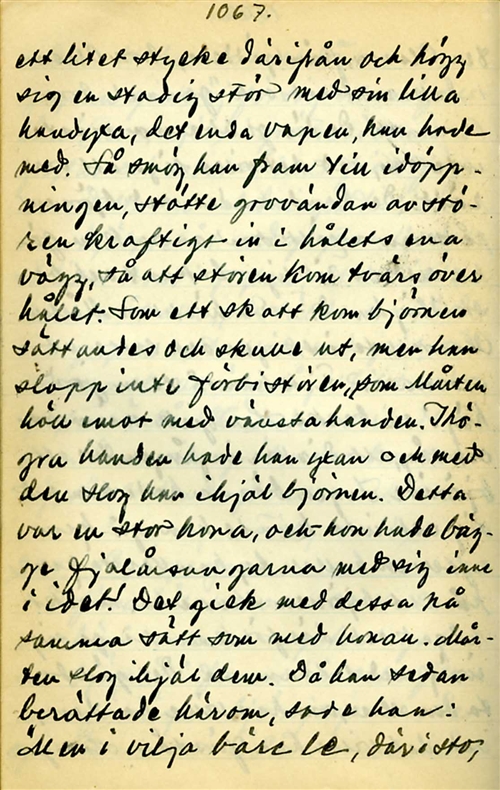 1067.
ett litet stycke därifrån och högg
sig en stadig stör med sin lilla
handyxa, det enda vapen, han hade
med. Så smög han fram till idöpp-
ningen, stötte grovändan av stö-
ren kraftigt in i hålets ena
vägg, så att stören kom tvärs över
hålet. Som ett skott kom björnen
sättandes och skulle ut, men han
slapp inte förbi stören, som Mårten
höll emot med vänsta handen. I hö-
gra handen hade han yxan och med
den slog han ihjäl björnen. Detta
var en stor hona, och hon hade båg-
ge fjolårsungarna med sig inne
i idet! Det gick med dessa på
samma sätt som med honan. Mår-
ten slog ihjäl dem. Då han sedan
berättade härom, sade han:
"Men i vilja bärc le, där i sto,